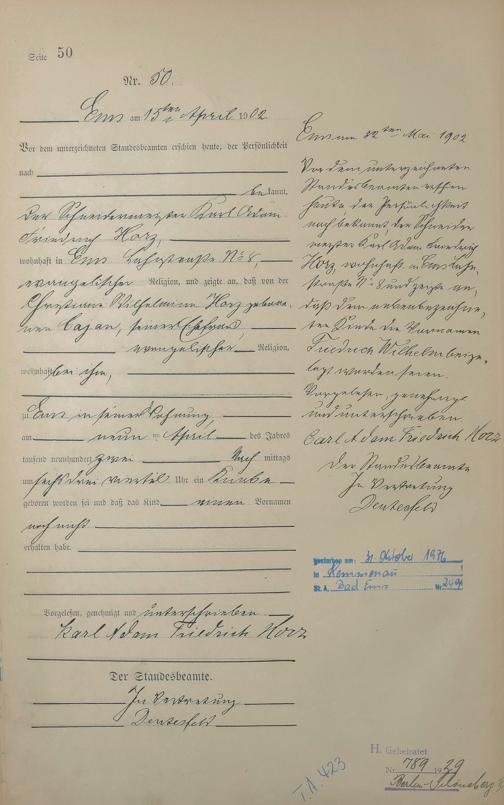 Seite 50
Nr. 50.
Ems am 15ten April 1902
Vor dem unterzeichneten Standesbeamten erschien heute, der Persönlichkeit
nach
bekannt,
der Schneidermeister Karl Adam
Friedrich Horz,
wohnhaft in Ems Lahnstraße No 8,
evangelischer Religion, und zeigte an, daß von der
Christiane Wilhelmine Horz gebore-
nen Cajan, seiner Ehefrau,
evangelischer Religion,
wohnhaft bei ihm,
zu Ems in seiner Wohnung
am neun ten April des Jahres
tausend neunhundert zwei Nach mittags
um sechs drei viertel Uhr ein Knabe
geboren worden sei und daß das Kind einen Vornamen
noch nicht
erhalten habe.
Vorgelesen, genehmigt und unterschrieben
Karl Adam Friedrich Horz
Der Standesbeamte.
In Vertretung
Ems am 12ten Mai 1902
Vor dem unterzeichneten
Standesbeamten erschien
heute der Persönlichkeit
nach bekannt, der Schneider
meister Karl Adam Friedrich
Horz, wohnhaft in Ems Lahn-
straße No 8 und zeigte an,
daß dem nebenbezeichne-
ten Kinde die Vornamen
Friedrich Wilhelm beige-
legt worden seien.
Vorgelesen, genehmigt
und unterschrieben
Carl Adam Friedrich Horz
Der Standesbeamte
In Vertretung
gestorben am: 31 Oktober 1976
in Kemmenau
St. A. Bad Ems Nr.
T.A 423
H. Geheiratet
Nr. 789 1929
Berlin-Schöneberg